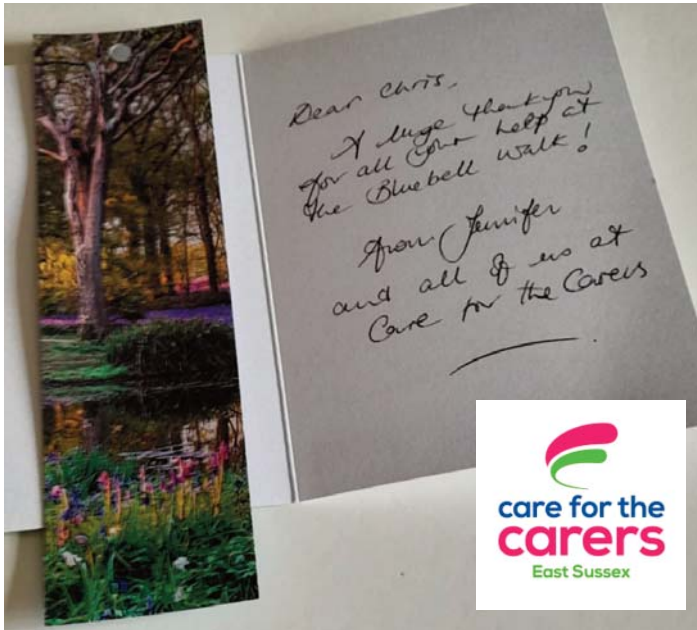 Dear Chris,
A huge thankyou
for all your help at
the Bluebell Walk!
from Jennifer
and all of us at
Care for the Carers
care for the
carers
East Sussex